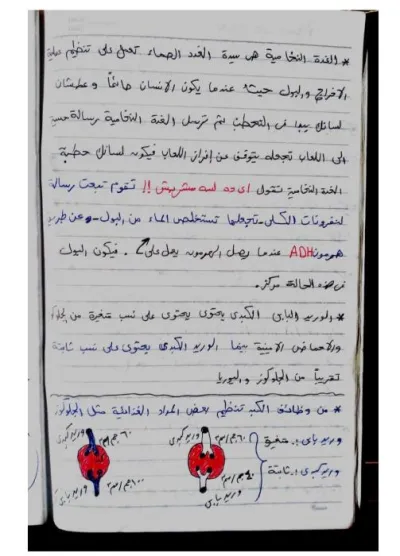 * الغدة النخامية هى سيدة الغدد الصماء تعمل على تنظيم عملية
الاخراج والبول حيث عندما يكون الانسان صائماً وعطشان
لسانك يبدأ فى التحطب ثم ترسل الغدة النخامية رسالة عصبية
الى اللعاب تجعله يتوقف عن إفراز اللعاب فيكون لسانك حطبة
الغدة النخامية تقول اى ده لسه مشربش !! تقوم تبعت رسالة
لنفرونات الكلى تجعلها تستخلص الماء من البول عن طريق
هرمون ADH عندما يصل الهرمون يعمل على فيكون البول
فى هذه الحالة مركز.
* الوريد البابى الكبدى يحتوى يحتوى على نسب متغيرة من الجلوكوز
والاحماض الامينية بينما الوريد الكبدى يحتوى على نسب ثابتة
تقريباً من الجلوكوز واليوريا
* من وظائف الكبد تنظيم بعض المواد الغذائية مثل الجلوكوز
وريد كبدى ٦٠ مجم/سم٣ وريد كبدى ٦٠ مجم/سم٣ وريد بابى: متغيرة
وريد كبدى: ثابتة
وريد بابى وريد بابى